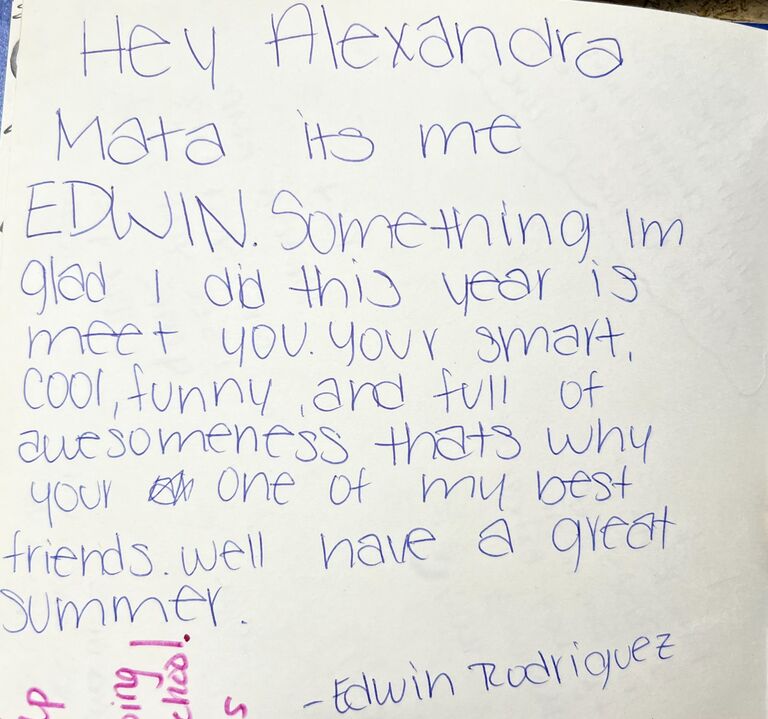 Hey Alexandra
Mata its me
EDWIN. Something Im
glad I did this year is
meet you. your smart,
cool, funny, and full of
awesomeness thats why
your one of my best
friends. well have a great
summer.
-Edwin Rodriguez